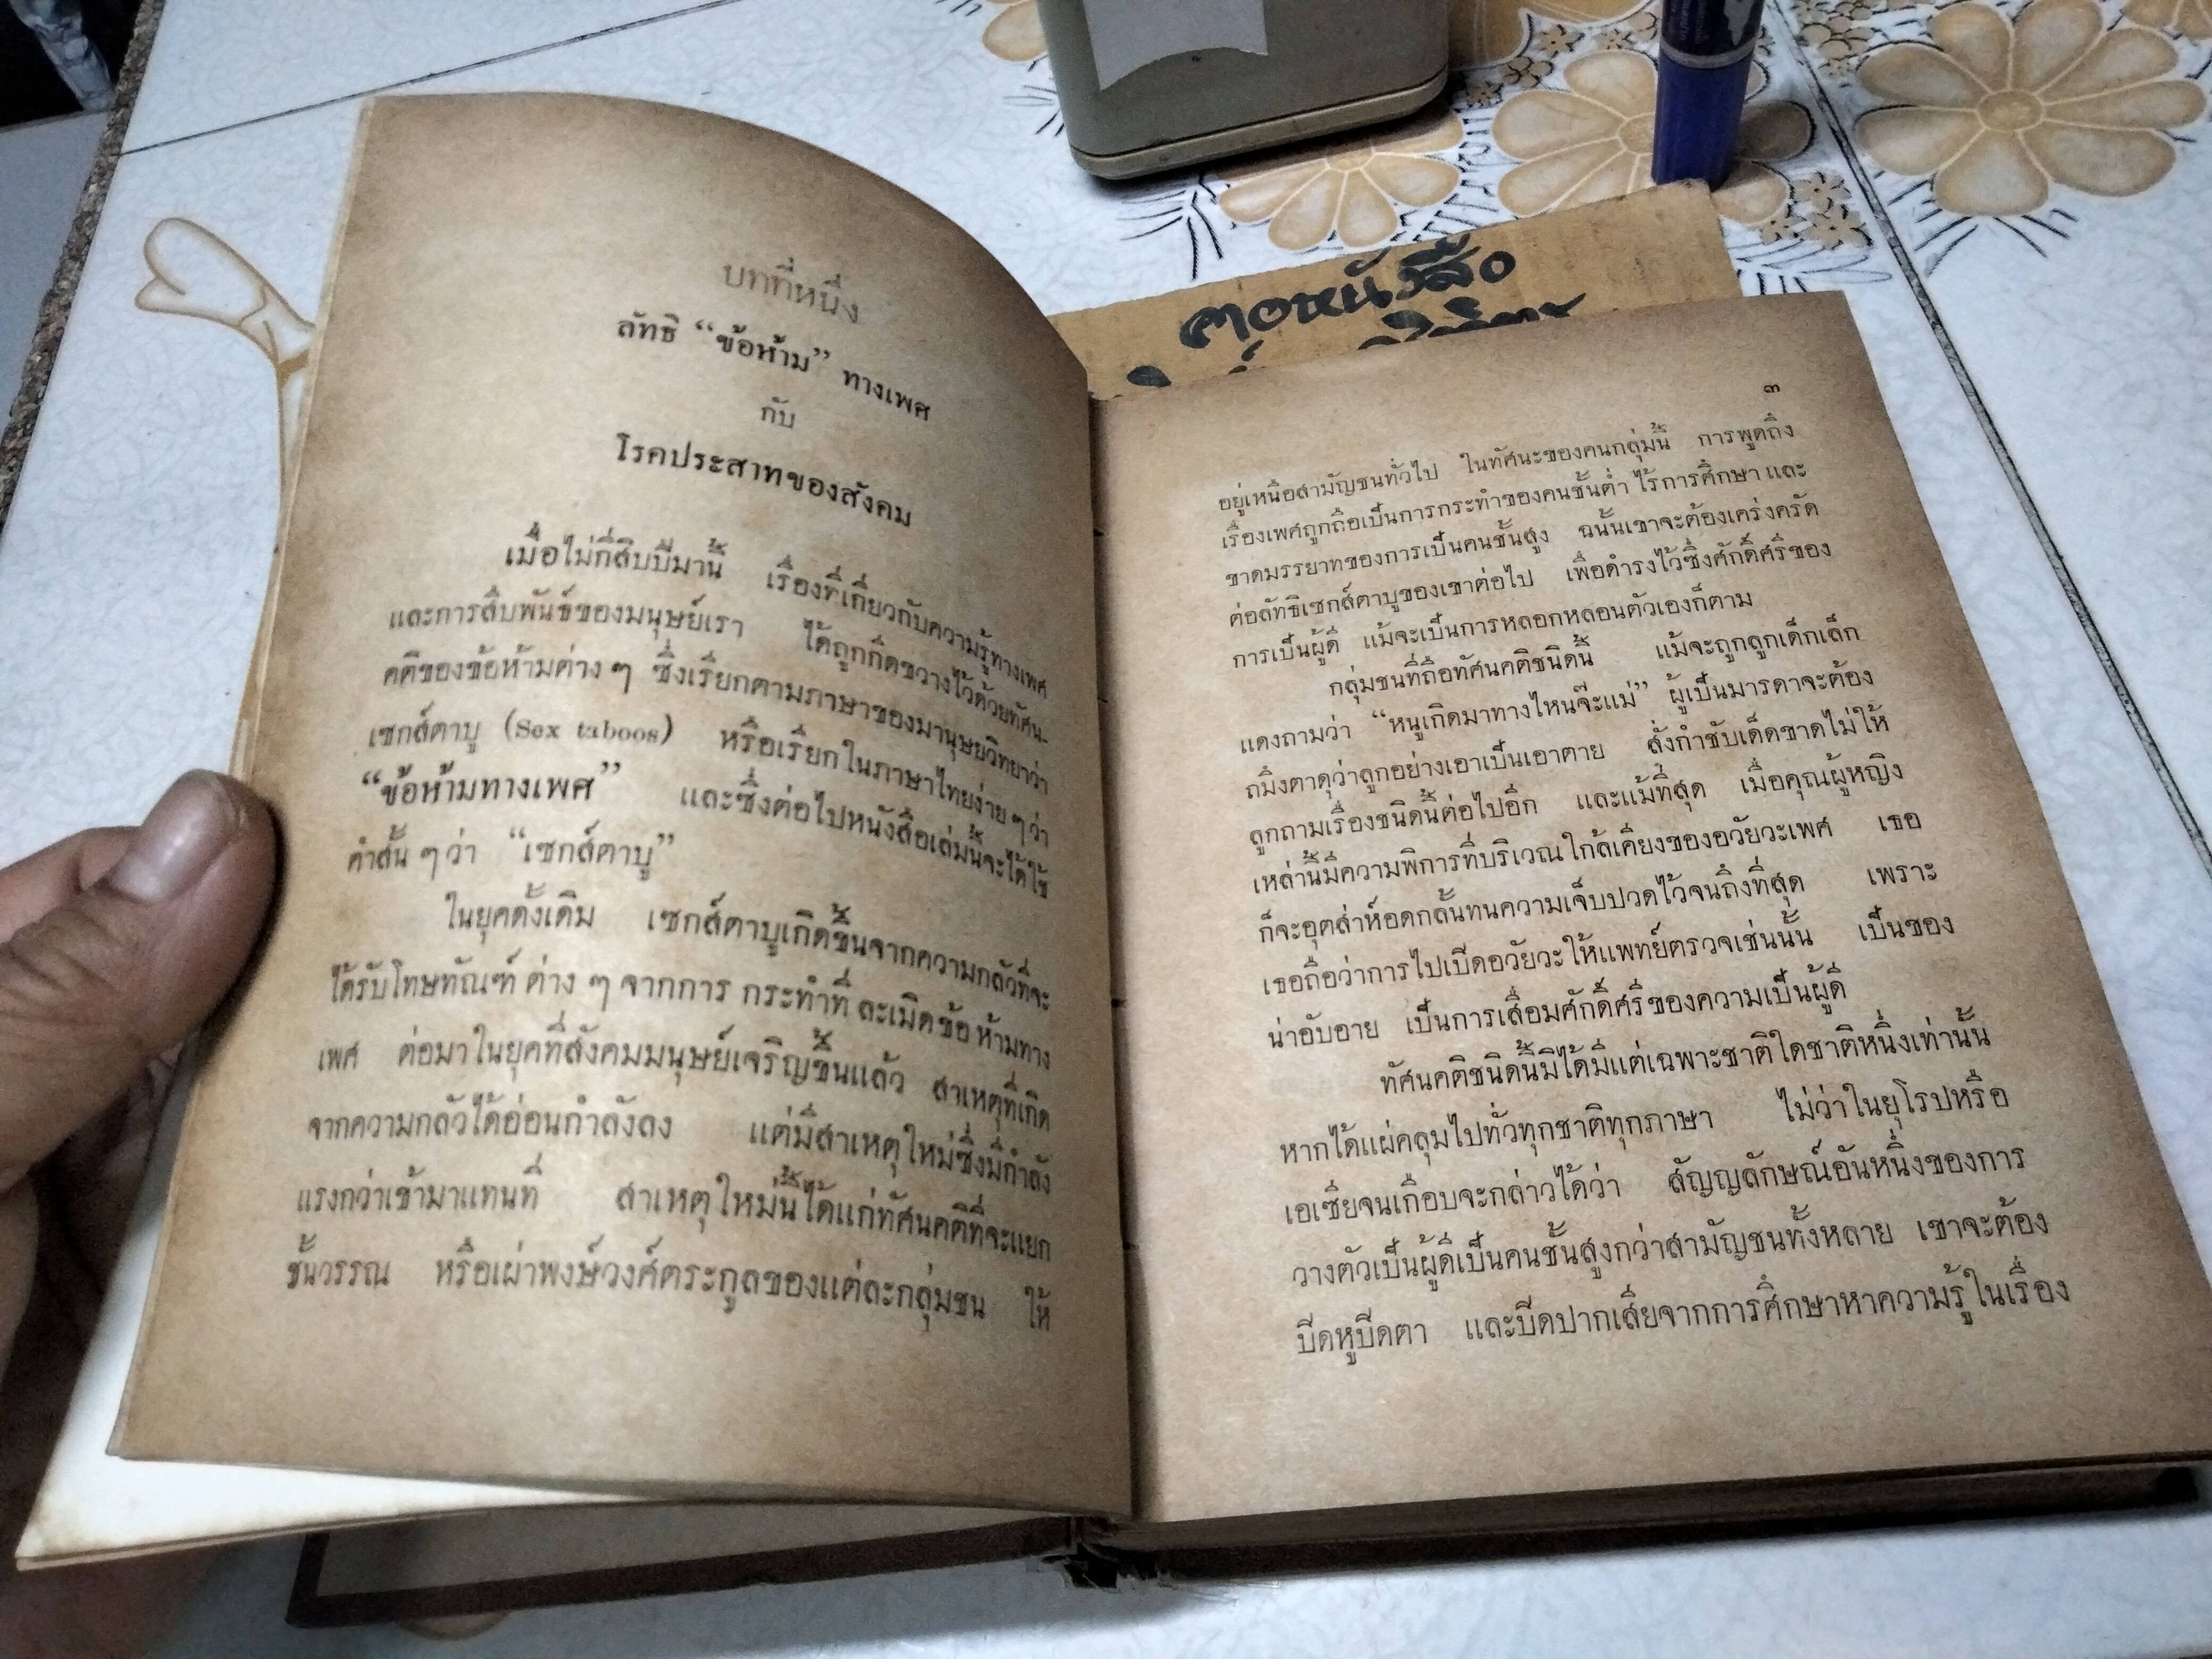 บทที่หนึ่ง
ลัทธิ “ข้อห้าม” ทางเพศ
กับ
โรคประสาทของสังคม
เมื่อไม่กี่สิบปีมานี้ เรื่องที่เกี่ยวกับความรู้ทางเพศ
และการสืบพันธ์ของมนุษย์เรา ได้ถูกกีดขวางไว้ด้วยทัศน-
คติของข้อห้ามต่าง ๆ ซึ่งเรียกตามภาษาของมานุษยวิทยาว่า
เซกส์ตาบู (Sex taboos) หรือเรียกในภาษาไทยง่าย ๆ ว่า
“ข้อห้ามทางเพศ” และซึ่งต่อไปหนังสือเล่มนี้จะได้ใช้
คำสั้น ๆ ว่า “เซกส์ตาบู”
ในยุคดั้งเดิม เซกส์ตาบูเกิดขึ้นจากความกลัวที่จะ
ได้รับโทษทัณฑ์ ต่าง ๆ จากการ กระทำที่ ละเมิดข้อ ห้ามทาง
เพศ ต่อมาในยุคที่สังคมมนุษย์เจริญขึ้นแล้ว สาเหตุที่เกิด
จากความกลัวได้อ่อนกำลังลง แต่มีสาเหตุใหม่ซึ่งมีกำลัง
แรงกว่าเข้ามาแทนที่ สาเหตุใหม่นี้ได้แก่ทัศนคติที่จะแยก
ชั้นวรรณ หรือเผ่าพงษ์วงศ์ตระกูลของแต่ละกลุ่มชน ให้
ฅอหนังสือ
๓
อยู่เหนือสามัญชนทั่วไป ในทัศนะของคนกลุ่มนี้ การพูดถึง
เรื่องเพศถูกถือเป็นการกระทำของคนชั้นต่ำ ไร้การศึกษา และ
ขาดมรรยาทของการเป็นคนชั้นสูง ฉนั้นเขาจะต้องเคร่งครัด
ต่อลัทธิเซกส์ตาบูของเขาต่อไป เพื่อดำรงไว้ซึ่งศักดิ์ศรีของ
การเป็นผู้ดี แม้จะเป็นการหลอกหลอนตัวเองก็ตาม
กลุ่มชนที่ถือทัศนคติชนิดนี้ แม้จะถูกลูกเด็กเล็ก
แดงถามว่า “หนูเกิดมาทางไหนจ๊ะแม่” ผู้เป็นมารดาจะต้อง
ถมึงตาดุว่าลูกอย่างเอาเป็นเอาตาย สั่งกำชับเด็ดขาดไม่ให้
ลูกถามเรื่องชนิดนี้ต่อไปอีก และแม้ที่สุด เมื่อคุณผู้หญิง
เหล่านี้มีความพิการที่บริเวณใกล้เคียงของอวัยวะเพศ เธอ
ก็จะอุตส่าห์อดกลั้นทนความเจ็บปวดไว้จนถึงที่สุด เพราะ
เธอถือว่าการไปเปิดอวัยวะให้แพทย์ตรวจเช่นนั้น เป็นของ
น่าอับอาย เป็นการเสื่อมศักดิ์ศรีของความเป็นผู้ดี
ทัศนคติชนิดนี้มิได้มีแต่เฉพาะชาติใดชาติหนึ่งเท่านั้น
หากได้แผ่คลุมไปทั่วทุกชาติทุกภาษา ไม่ว่าในยุโรปหรือ
เอเซียจนเกือบจะกล่าวได้ว่า สัญญลักษณ์อันหนึ่งของการ
วางตัวเป็นผู้ดีเป็นคนชั้นสูงกว่าสามัญชนทั้งหลาย เขาจะต้อง
ปิดหูปิดตา และปิดปากเสียจากการศึกษาหาความรู้ในเรื่อง